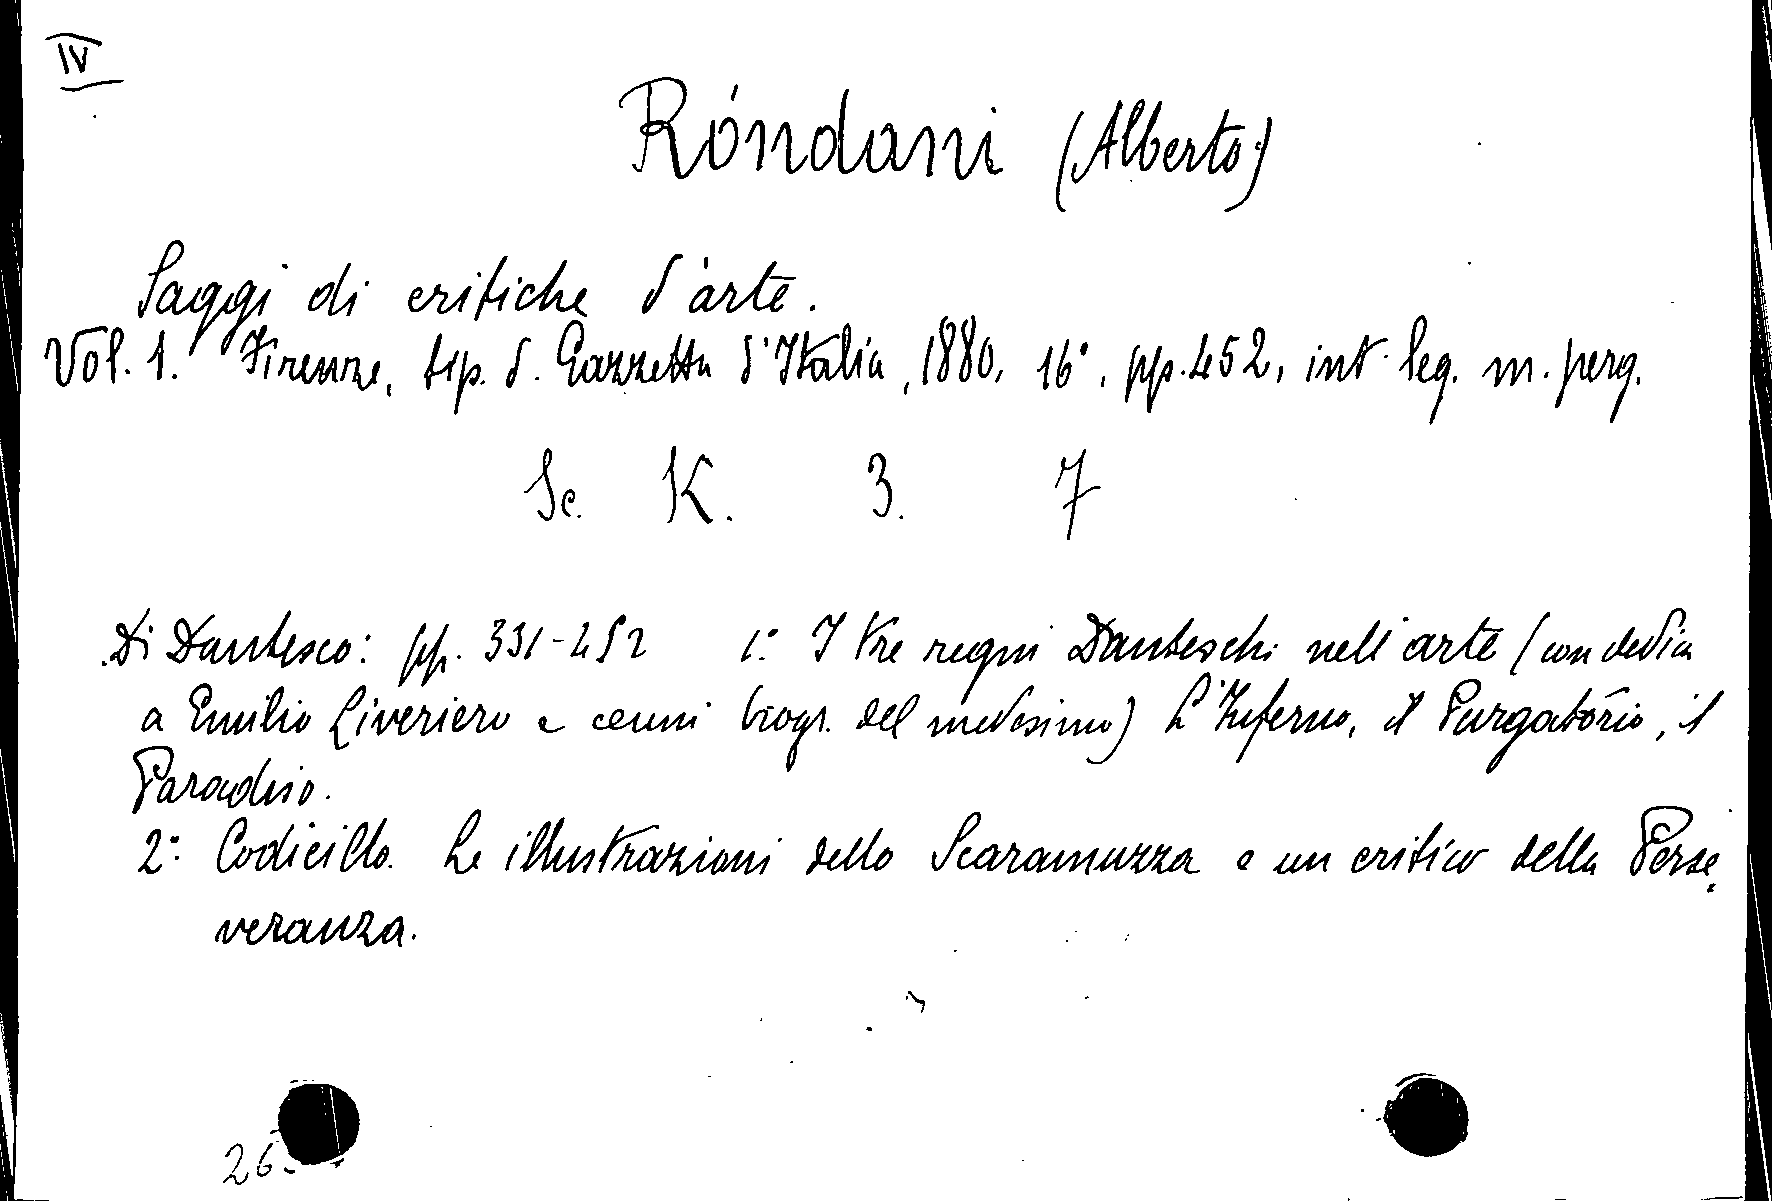 IV
Róndani (Alberto)
Saggi di critiche d'arte.
Vol. 1. Firenze, tip. d. Gazzetta d'Italia, 1880, 16°, pp. 452, int. leg. m. perg.
Sc. K. 3. 7
Di Dantesco: pp. 331-452 1° I tre regni Danteschi nell'arte (con dedica
a Emilio Liveriero e cenni biogr. del medesimo) L'Inferno, il Purgatorio, il
Paradiso.
2° Codicillo. Le illustrazioni dello Scaramuzza e un critico della Perse
veranza.
26